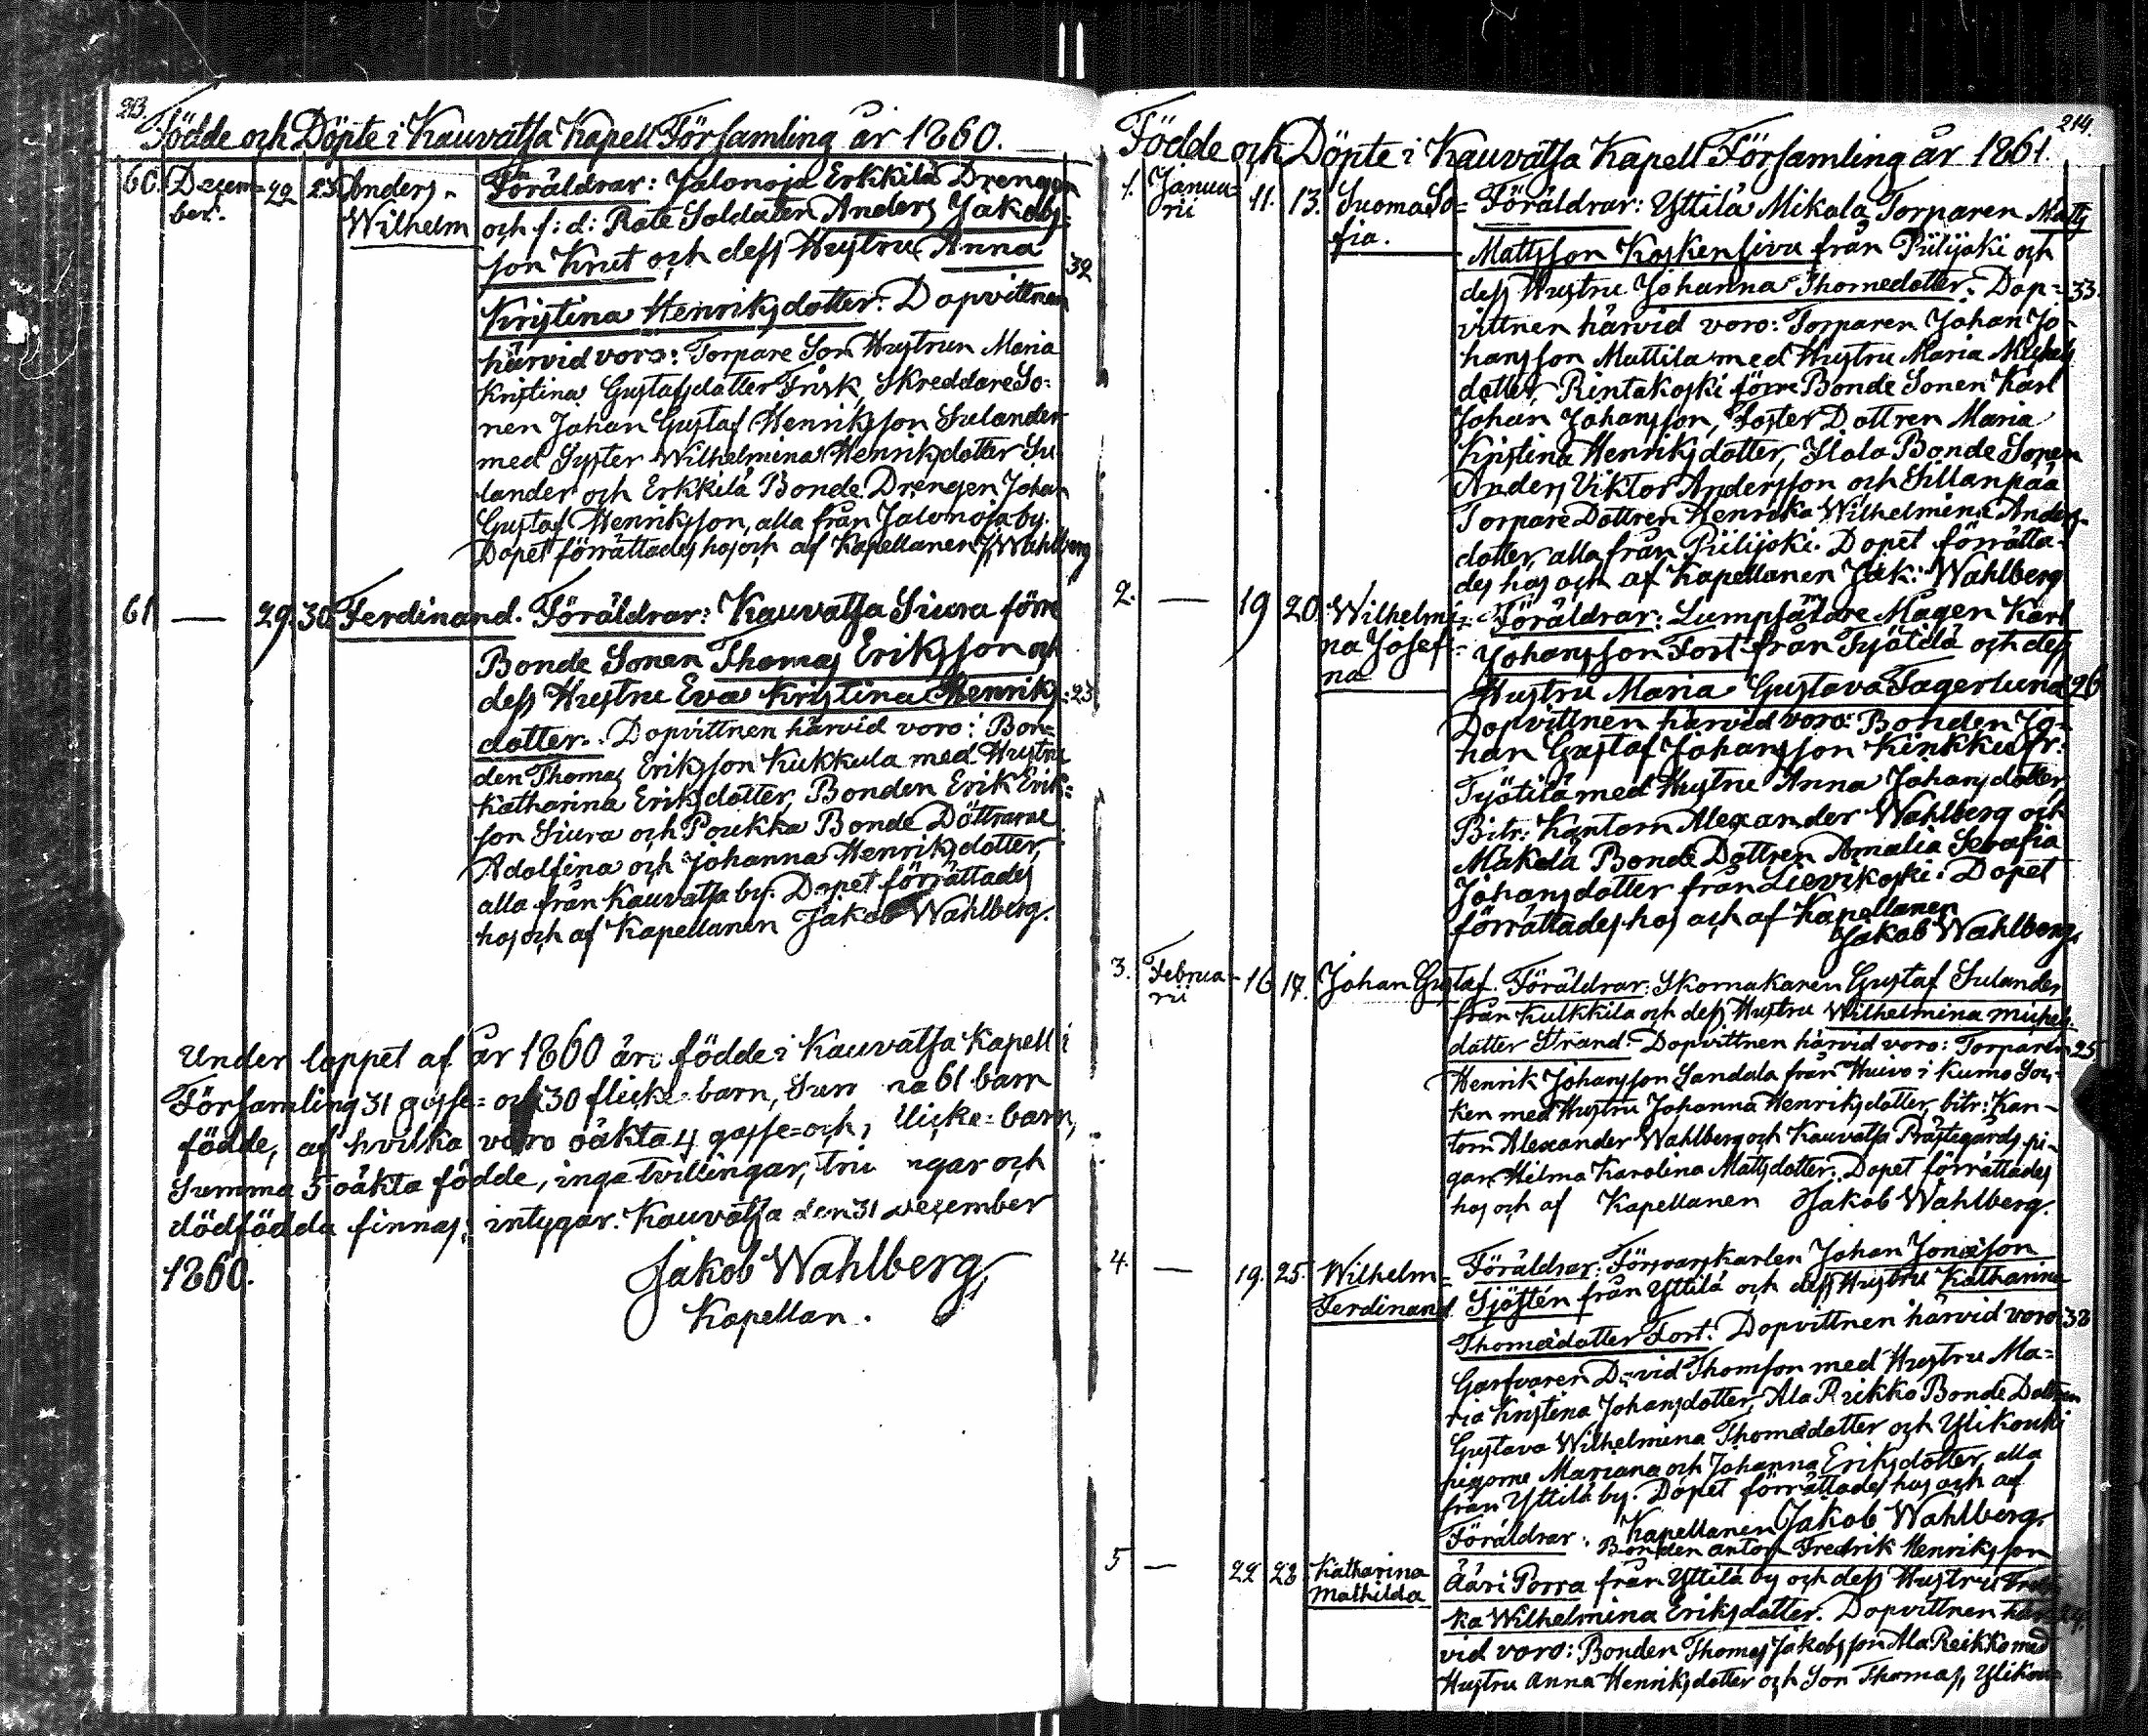 213.
Födde och Döpte i Kauvatsa Kapell Församling år 1860.
60. Decem= 22 23 Anders Föräldrar: Jalonoja Erkkilä Drengen
ber. Wilhelm och f: d: Rote Soldaten Anders Jakobs=
son Knut och dess Hustru Anna 32
Kristina Henriksdotter. Dopvittnen
härvid voro: Torpare Son Hustrun Maria
Kristina Gustafsdotter Frisk, Skreddare So=
nen Johan Gustaf Henriksson Sulander
med Syster Wilhelmina Henriksdotter Su
lander och Erkkilä Bonde Drengen Johan
Gustaf Henriksson, alla från Jalonoja by.
Dopet förrättades hos och af Kapellanen J. Wahlberg
61 — 29. 30. Ferdinand. Föräldrar: Kauvatsa Siura förre
Bonde Sonen Thomas Eriksson och
dess Hustru Eva Kristina Henriks= 23
dotter. Dopvittnen härvid voro: Bon=
den Thomas Eriksson Kukkula med Hustru
Katharina Eriksdotter, Bonden Erik Erik=
son Siura och Poukka Bonde Döttrarne
Adolfina och Johanna Henriksdotter,
alla från Kauvatsa by. Dopet förrättades
hos och af Kapellanen Jakob Wahlberg.
Under loppet af år 1860 äro födde i Kauvatsa Kapell
Församling 31 gosse= och 30 flicke barn, Sum na 61 barn
födde, af hvilka voro oäkta 4 gosse= och 1 flicke= barn,
Summa 5 oäkta födde, inga tvillingar, tri ngar och
dödfödda finnas; intygar. Kauvatsa den 31 December
1860. Jakob Wahlberg,
Kapellan.
214.
Födde och Döpte i Kauvatsa Kapell Församling år 1861.
1. Janua= 11. 13. Suoma So= Föräldrar: Yttilä Mikola Torparen Matts
rii fia. Mattsson Koskensivu från Piilijoki och
dess Hustru Johanna Thomedotter. Dop= 33.
vittnen härvid voro: Torparen Johan Jo=
hansson Mattila med Hustru Maria Michels
dotter, Rintakoski förre Bonde Sonen Karl
Johan Johansson, Foster Dottren Maria
Kristina Henriksdotter, Ilola Bonde Sonen
Anders Viktor Andersson och Sillanpää
Torpare Dottren Henrika Wilhelmina Anders=
dotter, alla från Piilijoki. Dopet förrätta=
des hos och af Kapellanen Jak: Wahlberg
2. — 19 20. Wilhelmi= Föräldrar: Lumpsätare Magen Karl
na Josefi= Johansson Fort från Työtilä och dess
na Hustru Maria Gustava Fagerlund 26
Dopvittnen härvid voro: Bonden Jo=
han Gustaf Johansson Kinkku fr:
Työtilä med Hustru Anna Johansdotter,
Bitr: Kantorn Alexander Wahlberg och
Mäkelä Bonde Dottren Amalia Serafia
Johansdotter från Lievikoski. Dopet
förrättades hos och af Kapellanen
Jakob Wahlberg.
3. Februa= 16 17. Johan Gustaf. Föräldrar: Skomakaren Gustaf Sulander
rii från Kulkkila och dess Hustru Wilhelmina Michels=
dotter Strand. Dopvittnen härvid voro: Torparen 25
Henrik Johansson Sandala från Huivo i Kumo Soc=
ken med Hustru Johanna Henriksdotter, bitr: Kan=
torn Alexander Wahlberg och Kauvatsa Prästegårds pi=
gan Hilma Karolina Mattsdotter. Dopet förrättades
hos och af Kapellanen Jakob Wahlberg.
4. — 19. 25. Wilhelm= Föräldrar: Försvarskarlen Johan Jonæson
Ferdinand Sjöstén från Yttilä och dess Hustru Katharina
Thomædotter Fort. Dopvittnen härvid voro 38
Garfvaren David Thomson med Hustru Ma=
ria Kristina Johansdotter, Ala Reikko Bonde Dottren
Gustava Wilhelmina Thomædotter och Ylikouki
pigorne Mariana och Johanna Eriksdotter, alla
från Yttilä by. Dopet förrättades hos och af
Kapellanen Jakob Wahlberg.
5 — 22 28 Katharina Föräldrar: Bonden Anton Fredrik Henriksson
Mathilda Ääri Porra från Yttilä by och dess Hustru
ka Wilhelmina Eriksdotter. Dopvittnen här
vid voro: Bonden Thomas Jakobsson Ala Reikko med
Hustru Anna Henriksdotter och Son Thomas, Ylikou=